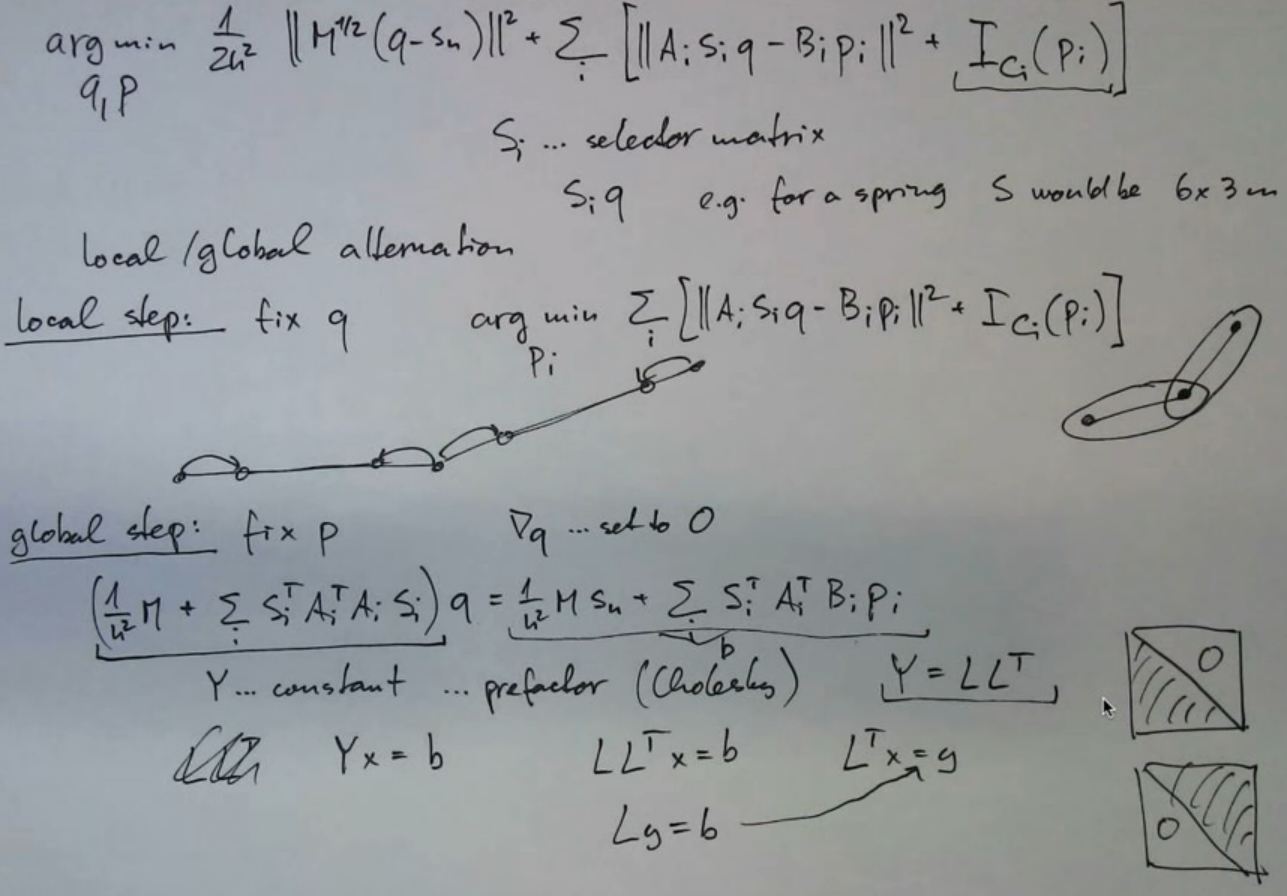 arg min 1/2h² ‖M^{1/2}(q-s_n)‖² + Σ_i [‖A_i S_i q - B_i p_i‖² + I_{C_i}(p_i)]
q, p
S_i ... selector matrix
S_i q e.g. for a spring S would be 6x3m
local/global alternation
local step: fix q arg min Σ_i [‖A_i S_i q - B_i p_i‖² + I_{C_i}(p_i)]
p_i
global step: fix p ∇q ... set to 0
(1/h² M + Σ_i S_i^T A_i^T A_i S_i) q = 1/h² M s_n + Σ_i S_i^T A_i^T B_i p_i
b
Y ... constant ... prefactor (Cholesky) Y = LL^T
0
Yx = b LL^T x = b L^T x = y
Ly = b
0